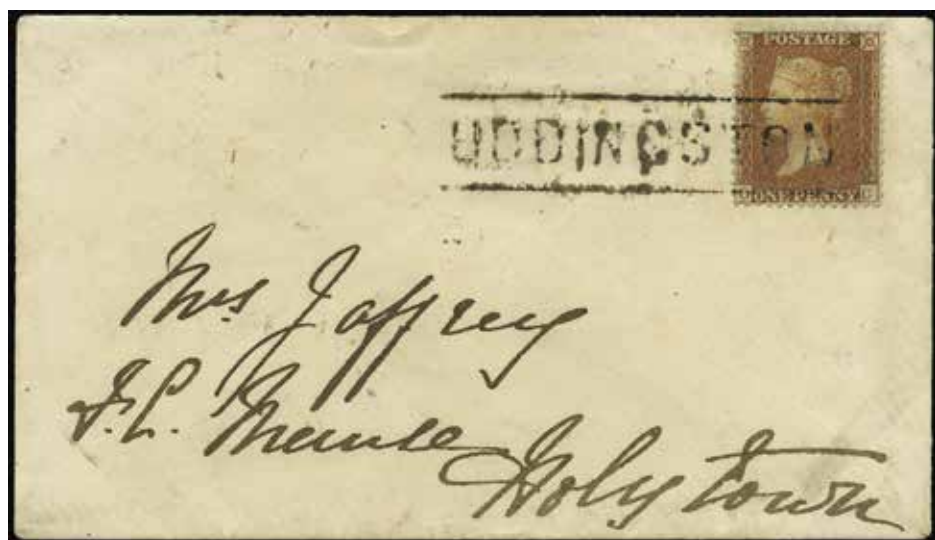 POSTAGE
UDDINGSTON
ONE PENNY
Mrs Jaffrey
F.C. Manse
Holytown